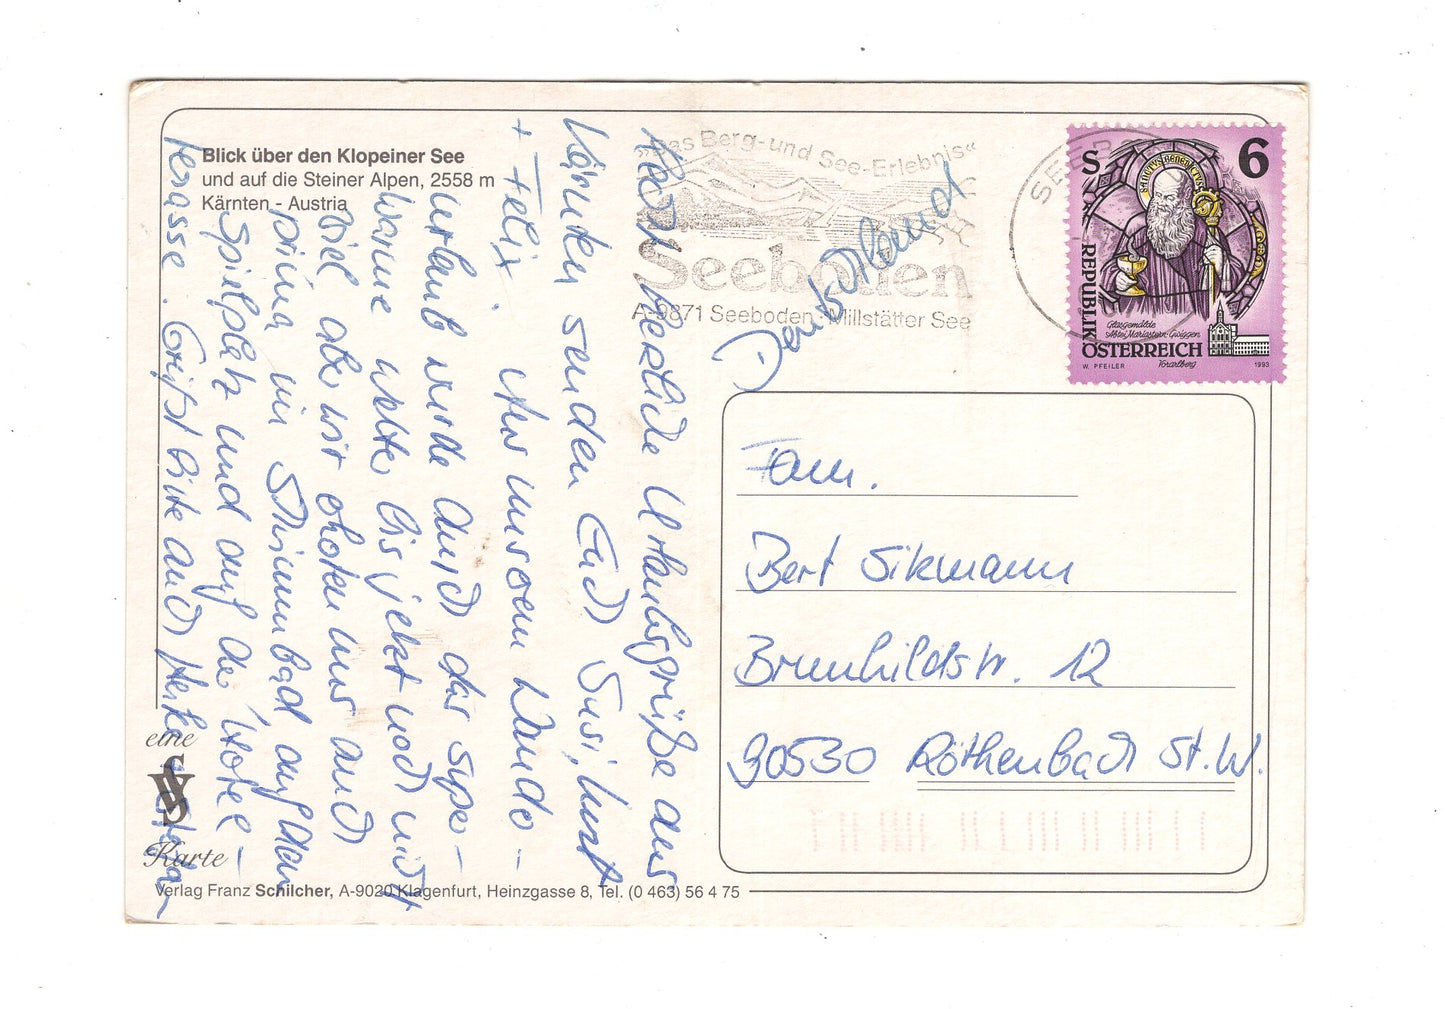 Blick über den Klopeiner See
und auf die Steiner Alpen, 2558 m
Kärnten - Austria
Recht herzliche Urlaubsgrüße aus
Kärnten senden Euch Susi, Kurt
+ Felix. Uns unserem Wander-
urlaub wurde durch das
warme Wetter bis jetzt noch nicht
viel aber wir aholen uns auch
prima im Schwimmbad auf dem
Spielplatz und auf der Hotel-
terasse. Grüßt bitte auch Heike
eine
VS
Karte
Verlag Franz Schilcher, A-9020 Klagenfurt, Heinzgasse 8, Tel. (0 463) 56 4 75
»Das Berg- und See-Erlebnis«
Seeboden
A-9871 Seeboden · Millstätter See
SEEB
Deutschland
S 6
SANCTUS BENEDICTUS
REPUBLIK
ÖSTERREICH
Glasgemälde
Abtei Mariastern-Gwiggen
Vorarlberg
W. PFEILER
1993
Fam.
Bert Sikmann
Brunhildstr. 12
90530 Röthenbach St. W.